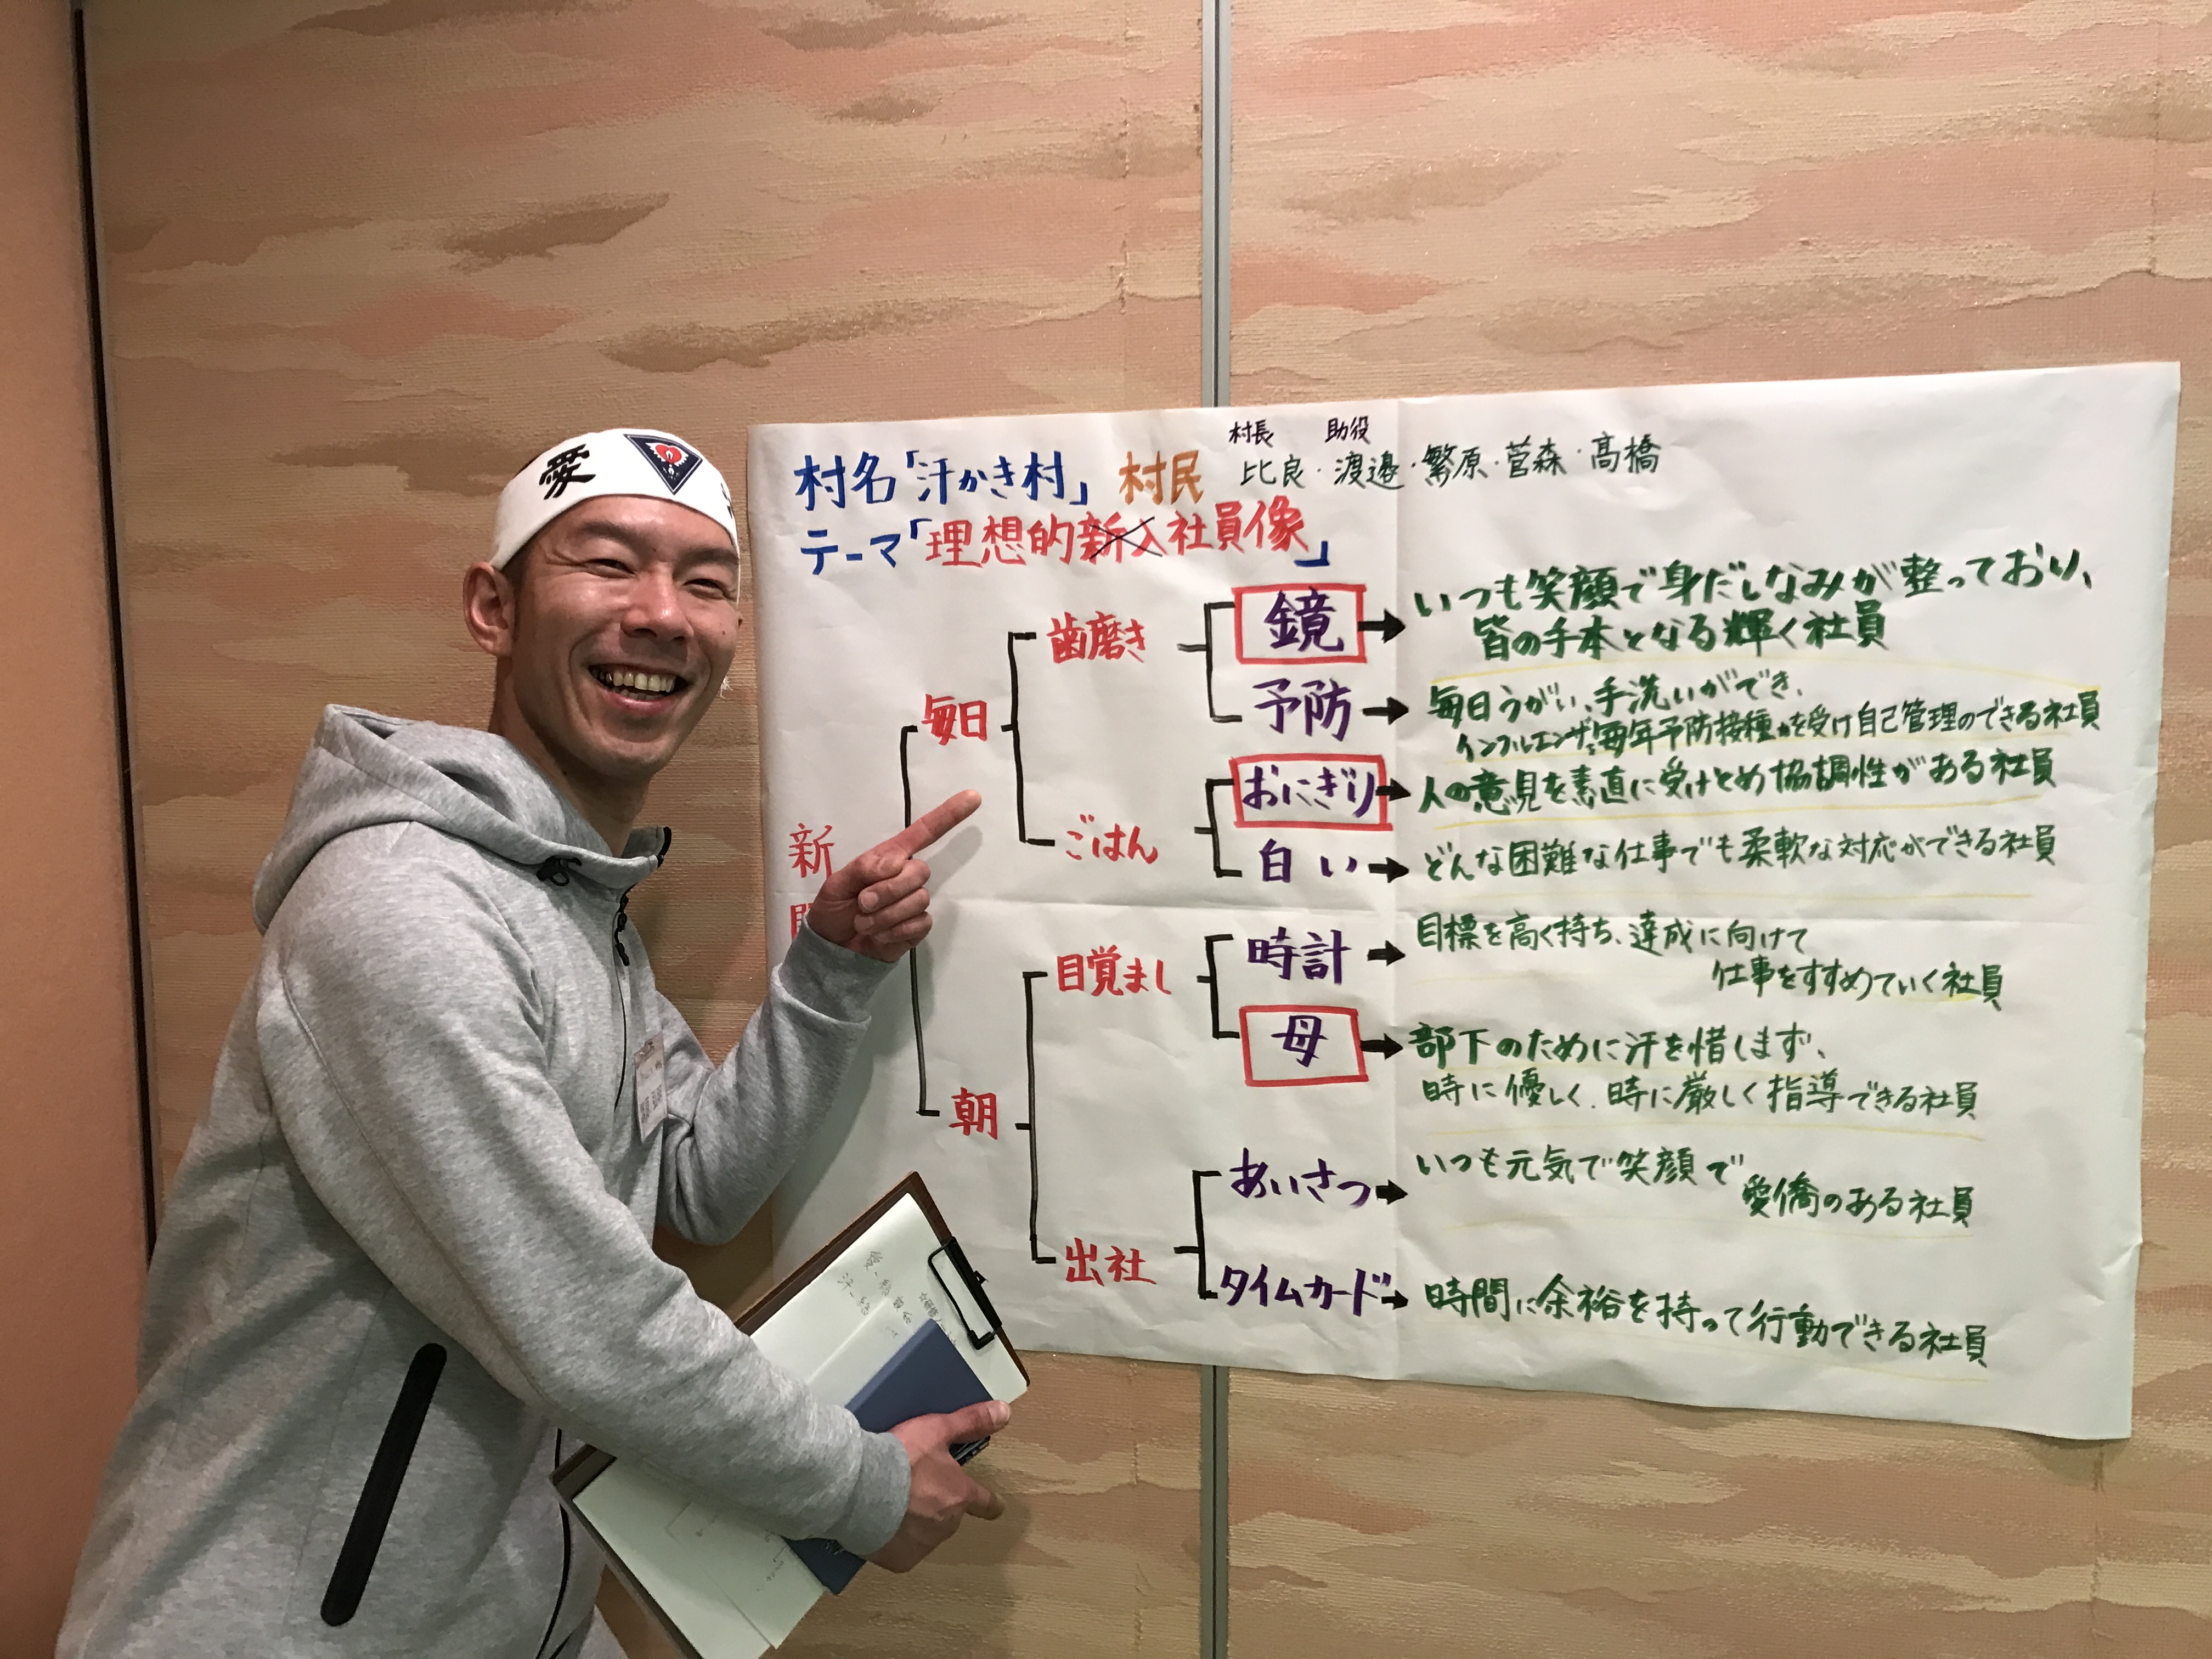 愛
村長 助役
村名「汗かき村」 村民 比良・渡邉・繁原・菅森・髙橋
テーマ「理想的新入社員像」
新
毎日
歯磨き
鏡 → いつも笑顔で身だしなみが整っており、
皆の手本となる輝く社員
予防 → 毎日うがい、手洗いができ、
インフルエンザ毎年予防接種を受け自己管理のできる社員
ごはん
おにぎり → 人の意見を素直に受けとめ協調性がある社員
白い → どんな困難な仕事でも柔軟な対応ができる社員
朝
目覚まし
時計 → 目標を高く持ち、達成に向けて
仕事をすすめていく社員
母 → 部下のために汗を惜しまず、
時に優しく、時に厳しく指導できる社員
出社
あいさつ → いつも元気で笑顔で
愛僑のある社員
タイムカード → 時間に余裕を持って行動できる社員